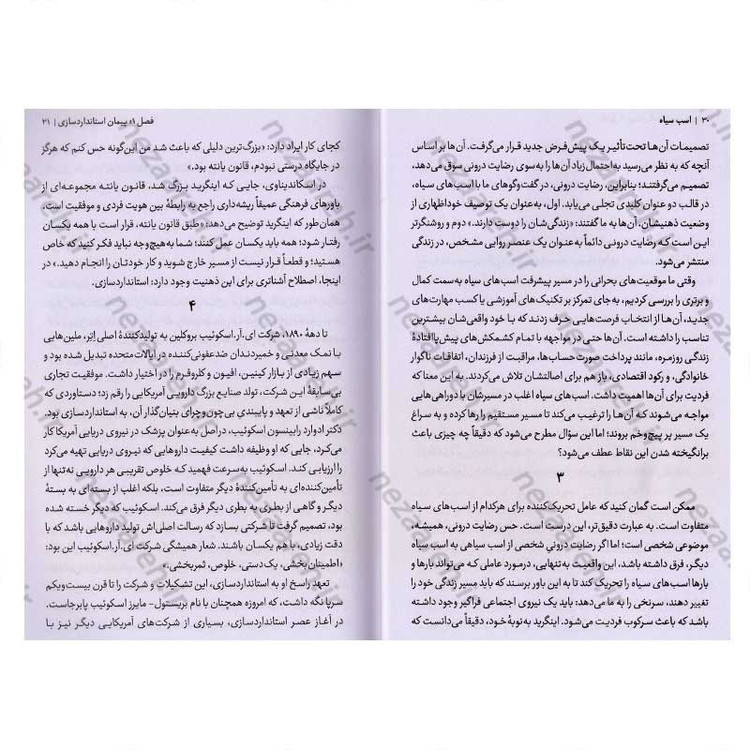 ۳۰ | اسب سیاه
تصمیمات آن‌ها تحت‌تأثیر یک پیش‌فرض جدید قرار می‌گرفت. آن‌ها بر اساس
آنچه که به نظر می‌رسید به‌احتمال زیاد آن‌ها را به‌سوی رضایت درونی سوق می‌دهد،
تصمیم می‌گرفتند؛ بنابراین، رضایت درونی، در گفت‌وگوهای ما با اسب‌های سیاه،
در قالب دو عنوان کلیدی تجلی می‌یابد. اول، به‌عنوان یک توصیف خوداظهاری از
وضعیت ذهنیشان. آن‌ها به ما گفتند: «زندگی‌شان را دوست دارند.» دوم و روشنگرتر
این است که رضایت درونی دائماً به‌عنوان یک عنصر روایی مشخص، در زندگی
منتشر می‌شود.
وقتی ما موقعیت‌های بحرانی را در مسیر پیشرفت اسب‌های سیاه به‌سمت کمال
و برتری را بررسی کردیم، به‌جای تمرکز بر تکنیک‌های آموزشی یا کسب مهارت‌های
جدید، آن‌ها از انتخاب فرصت‌هایی حرف زدند که با خود واقعی‌شان بیشترین
تناسب را داشته است. آن‌ها حتی در مواجهه با تمام کشمکش‌های پیش‌پاافتادهٔ
زندگی روزمره، مانند پرداخت صورت حساب‌ها، مراقبت از فرزندان، اتفاقات ناگوار
خانوادگی، و رکود اقتصادی، باز هم برای اصالتشان تلاش می‌کردند. به این معنا که
فردیت برای آن‌ها اهمیت داشت. اسب‌های سیاه اغلب در مسیرشان با دوراهی‌هایی
مواجه می‌شوند که آن‌ها را ترغیب می‌کند تا مسیر مستقیم را رها کرده و به سراغ
یک مسیر پر پیچ‌وخم بروند؛ اما این سؤال مطرح می‌شود که دقیقاً چه چیزی باعث
برانگیخته شدن این نقاط عطف می‌شود؟
۳
ممکن است گمان کنید که عامل تحریک‌کننده برای هرکدام از اسب‌های سیاه
متفاوت است. به عبارت دقیق‌تر، این درست است. حس رضایت درونی، همیشه،
موضوعی شخصی است؛ اما اگر رضایت درونی شخصی از اسب سیاهی به اسب
دیگر، فرق داشته باشد، این واقعیت به‌تنهایی، درمورد عاملی که می‌تواند بارها و
بارها اسب‌های سیاه را تحریک کند تا به این باور برسند که باید مسیر زندگی خود را
تغییر دهند، سرنخی را به ما می‌دهد: باید یک نیروی اجتماعی فراگیر وجود داشته
باشد که باعث سرکوب فردیت می‌شود. اینگرید به‌نوبهٔ‌خود، دقیقاً می‌دانست که
فصل ۱: پیمان استانداردسازی | ۳۱
کجای کار ایراد دارد: «بزرگ‌ترین دلیلی که باعث شد من این‌گونه حس کنم که هرگز
در جایگاه درستی نبودم، قانون یانته بود.»
در اسکاندیناوی، جایی که اینگرید بزرگ شد، قانون یانته مجموعه‌ای از
باورهای فرهنگی عمیقاً ریشه‌داری راجع به رابطهٔ بین هویت فردی و موفقیت است.
همان‌طور که اینگرید توضیح می‌دهد: «طبق قانون یانته، قرار است با همه یکسان
رفتار شود؛ همه باید یکسان عمل کنند؛ شما به‌هیچ‌وجه نباید فکر کنید که خاص
هستید؛ و قطعاً قرار نیست از مسیر خارج شوید و کار خودتان را انجام دهید.» در
اینجا، اصطلاح آشناتری برای این ذهنیت وجود دارد: استانداردسازی.
۴
تا دههٔ ۱۸۹۰، شرکت ای.آر.اسکوئیب بروکلین به تولیدکنندهٔ اصلی اِتِر، ملین‌هایی
با نمک معدنی و خمیردندان ضدعفونی‌کننده در ایالات متحده تبدیل شده بود و
سهم زیادی از بازار کینین، افیون و کلروفرم را در اختیار داشت. موفقیت تجاری
بی‌سابقهٔ این شرکت، تولد صنایع بزرگ دارویی آمریکایی را رقم زد؛ دستاوردی که
کاملاً ناشی از تعهد و پایبندی بی‌چون‌وچرای بنیان‌گذار آن، به استانداردسازی بود.
دکتر ادوارد رابینسون اسکوئیب، دراصل به‌عنوان پزشک در نیروی دریایی آمریکا کار
می‌کرد، جایی که او وظیفه داشت کیفیت داروهایی که نیروی دریایی تهیه می‌کرد
را ارزیابی کند. اسکوئیب به‌سرعت فهمید که خلوص تقریبی هر دارویی نه‌تنها از
تأمین‌کننده‌ای به تأمین‌کنندهٔ دیگر متفاوت است، بلکه اغلب از بسته‌ای به بستهٔ
دیگر و گاهی از بطری به بطری دیگر فرق می‌کند. اسکوئیب که دیگر خسته شده
بود، تصمیم گرفت تا شرکتی بسازد که رسالت اصلی‌اش تولید داروهایی باشد که با
دقت زیادی، با هم یکسان باشند. شعار همیشگی شرکت ای.آر.اسکوئیب این بود:
«اطمینان‌بخشی، یک‌دستی، خلوص، ثمربخشی.»
تعهد راسخ او به استانداردسازی، این تشکیلات و شرکت را تا قرن بیست‌ویکم
سرپا نگه داشت، که امروزه همچنان با نام بریستول- مایرز اسکوئیب پابرجاست.
در آغاز عصر استانداردسازی، بسیاری از شرکت‌های آمریکایی دیگر نیز با